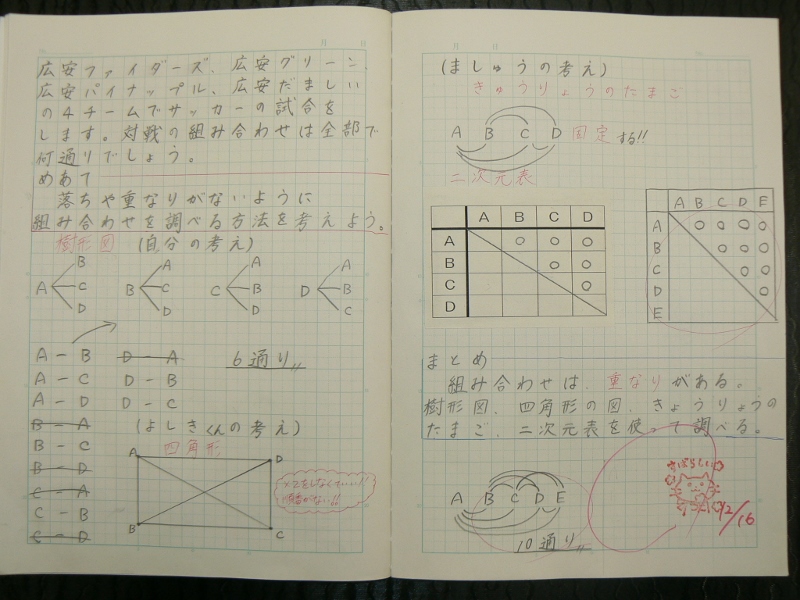 広安ファイダーズ、広安グリーン、
広安パイナップル、広安だましい
の4チームでサッカーの試合を
します。対戦の組み合わせは全部で
何通りでしょう。
めあて
落ちや重なりがないように
組み合わせを調べる方法を考えよう。
樹形図 (自分の考え)
A B C D
B A C D
C A B D
D A B C
A - B
A - C
A - D
B - A
B - C
B - D
C - A
C - B
C - D
D - A
D - B
D - C
6通り
(よしきくんの考え)
四角形
A D
B C
(ましゅうの考え)
きゅうりょうのたまご
A B C D 固定する!!
二次元表
A B C D
A ○ ○ ○
B ○ ○
C ○
D
A B C D E
A ○ ○ ○ ○
B ○ ○ ○
C ○ ○
D ○
E
まとめ
組み合わせは、重なりがある。
樹形図、四角形の図、きょうりょうの
たまご、二次元表を使って調べる。
A B C D E
10通り
すばらしい
12/16